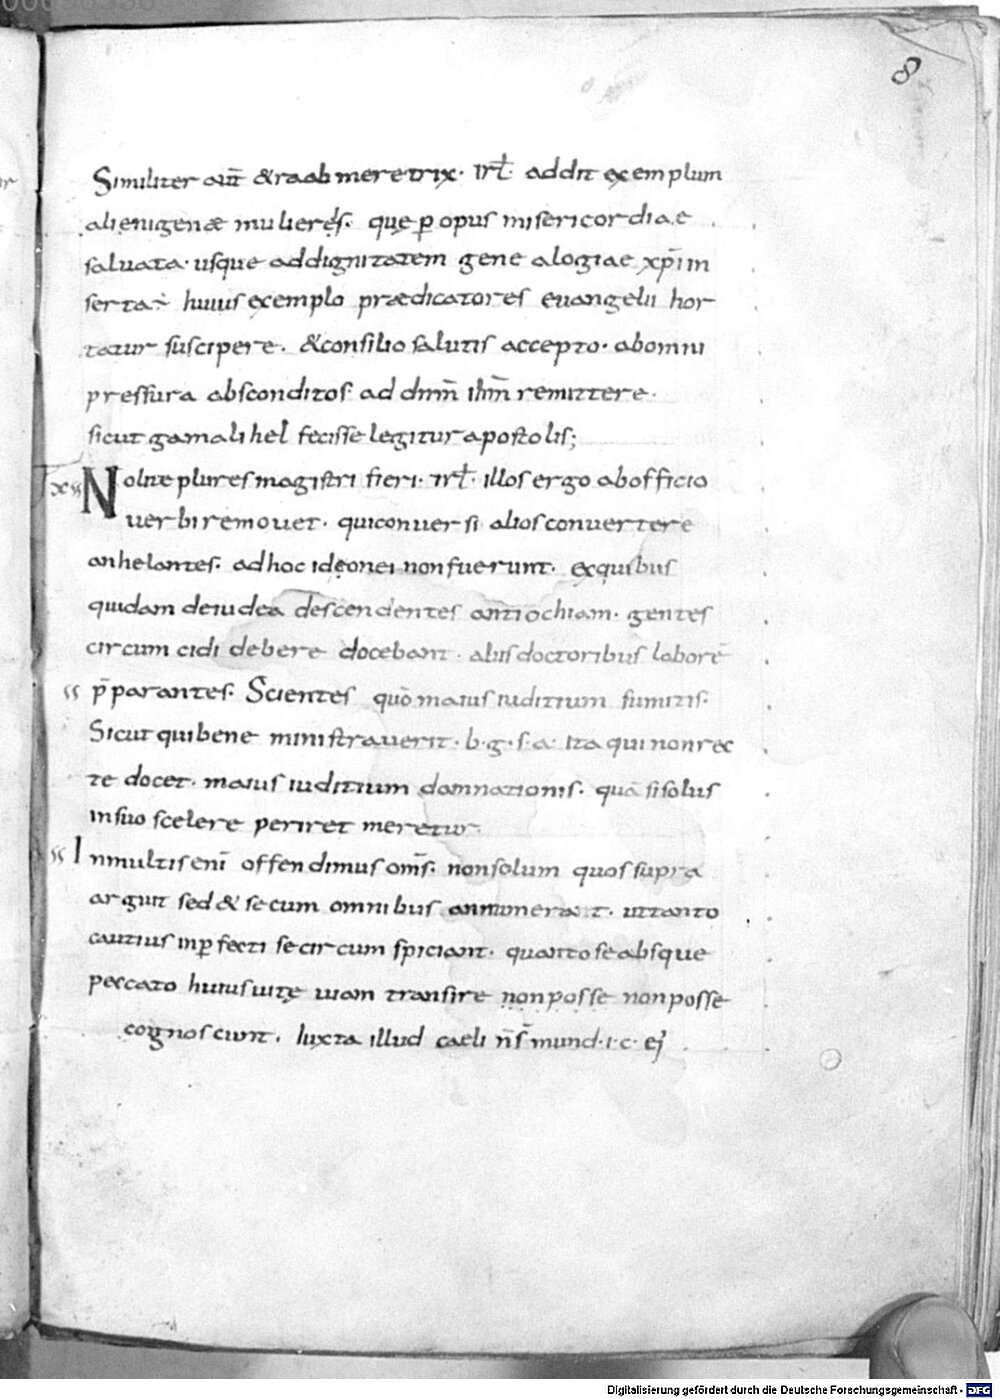 8
Similiter aut̄ & raab meretrix. irl̄. addit exemplum
alienigenæ mulieris. que ꝑ opus misericordiae
saluata. usque ad dignitatem genealogiae xp̄i in
serta ÷ huius exemplo prædicatores euangelii hor
tatur suscipere. & consilio salutis accepto. ab omni
pressura absconditos ad dnm̄ ihm̄ remittere.
sicut gamalihel fecisse legitur apostolis;
Nolite plures magistri fieri. irl̄. illos ergo ab officio
uerbi remouet. qui conuersi alios conuertere
anhelantes. ad hoc idęonei non fuerunt. ex quibus
quidam de iudea descendentes antiochiam. gentes
circumcidi debere docebant. aliis doctoribus laborē
p̄parantes. Scientes quō maius iuditium sumitis.
Sicut qui bene ministrauerit. b. g. s. a. ita qui non rec
te docet. maius iuditium damnationis. quā si solus
in suo scelere periret meretur.
In multis eni̅ offendimus om̄s. non solum quos supra
arguit sed & secum omnibus annumerat. ut tanto
cautius inꝑfecti se circumspiciant. quanto se absque
peccato huius uitę uiam transire non posse non posse
cognoscunt. Iuxta illud caeli n̄s̄ mund. i. c. ej
Digitalisierung gefördert durch die Deutsche Forschungsgemeinschaft - DFG